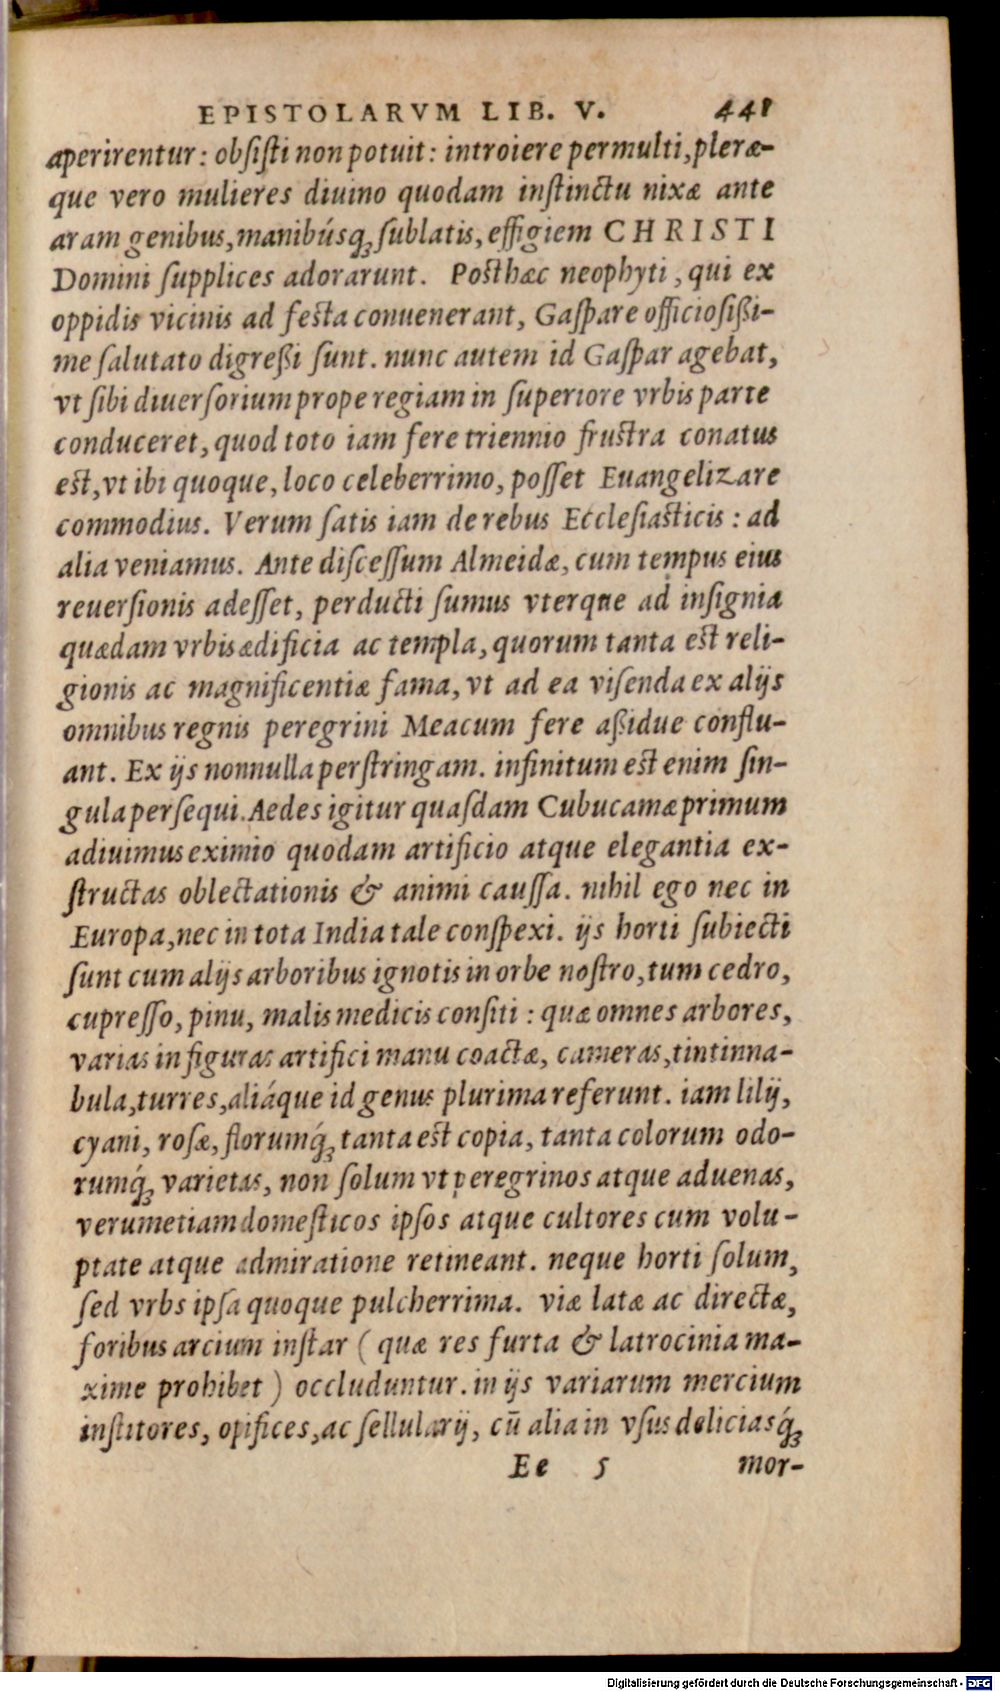 EPISTOLARVM LIB. V. 441
aperirentur: obſiſti non potuit: introiere permulti, pleræ-
que vero mulieres diuino quodam inſtinctu nixæ ante
aram genibus, manibúsqꝫ ſublatis, effigiem CHRISTI
Domini ſupplices adorarunt. Posthæc neophyti, qui ex
oppidis vicinis ad feſta conuenerant, Gaſpare officioſißi-
me ſalutato digreßi ſunt. nunc autem id Gaſpar agebat,
vt ſibi diuerſorium prope regiam in ſuperiore vrbis parte
conduceret, quod toto iam fere triennio fruſtra conatus
eſt, vt ibi quoque, loco celeberrimo, poſſet Euangelizare
commodius. Verum ſatis iam de rebus Eccleſiaſticis: ad
alia veniamus. Ante diſceſſum Almeidæ, cum tempus eius
reuerſionis adeſſet, perducti ſumus vterque ad inſignia
quædam vrbis ædificia ac templa, quorum tanta eſt reli-
gionis ac magnificentiæ fama, vt ad ea viſenda ex alijs
omnibus regnis peregrini Meacum fere aßidue conflu-
ant. Ex ijs nonnulla perſtringam. infinitum eſt enim ſin-
gula perſequi. Aedes igitur quaſdam Cubucamæ primum
adiuimus eximio quodam artificio atque elegantia ex-
ſtructas oblectationis & animi cauſſa. nihil ego nec in
Europa, nec in tota India tale conſpexi. ijs horti ſubiecti
ſunt cum alijs arboribus ignotis in orbe noſtro, tum cedro,
cupreſſo, pinu, malis medicis conſiti: quæ omnes arbores,
varias in figuras artifici manu coactæ, cameras, tintinna-
bula, turres, aliáque id genus plurima referunt. iam lilij,
cyani, roſæ, florumq́ꝫ tanta eſt copia, tanta colorum odo-
rumq́ꝫ varietas, non ſolum vt peregrinos atque aduenas,
verumetiam domeſticos ipſos atque cultores cum volu-
ptate atque admiratione retineant. neque horti ſolum,
ſed vrbs ipſa quoque pulcherrima. viæ latæ ac directæ,
foribus arcium inſtar (quæ res furta & latrocinia ma-
xime prohibet) occluduntur. in ijs variarum mercium
inſtitores, opifices, ac ſellularij, cū alia in vſus deliciasq́ꝫ
Ee 5 mor-
Digitalisierung gefördert durch die Deutsche Forschungsgemeinschaft - DFG